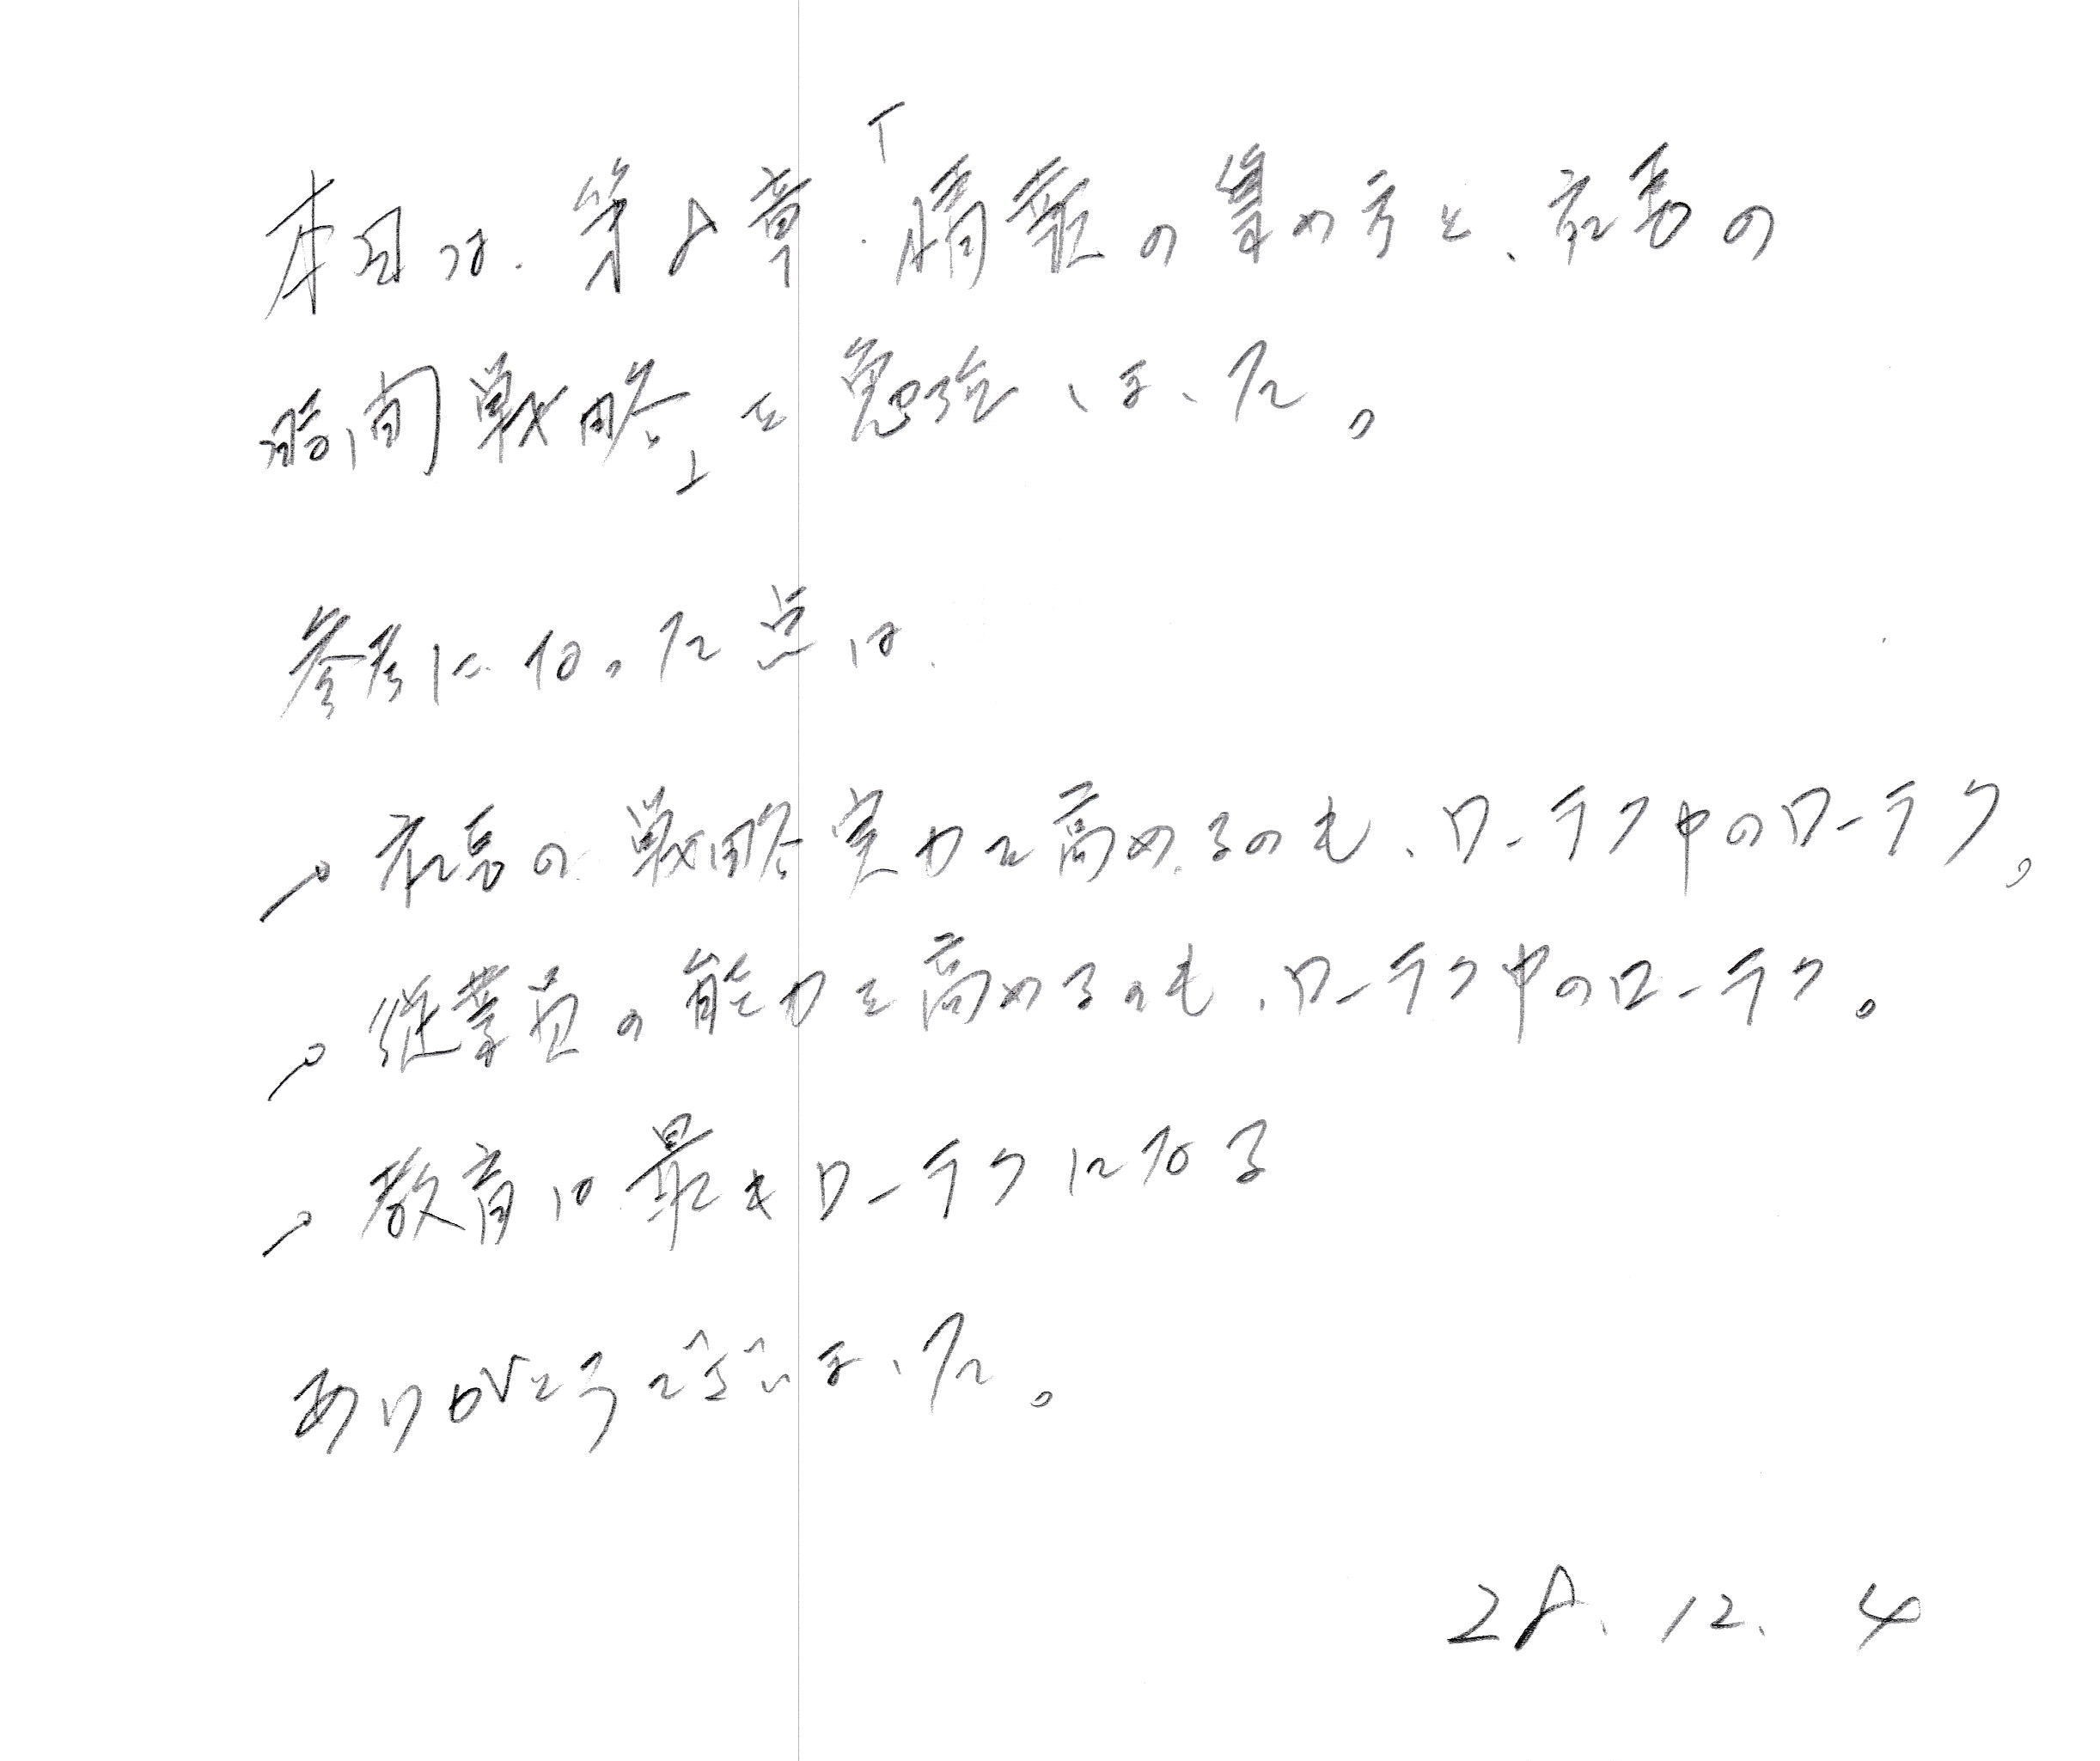 本日は、第8章「情報の集め方と、社長の
時間戦略」を勉強しました。
参考になった点は、
→ 社長の戦略実力を高めるのも、ローテク中のローテク。
→ 従業員の能力を高めるのも、ローテク中のローテク。
→ 教育は最もローテクになる
ありがとうございました。
28.12.4